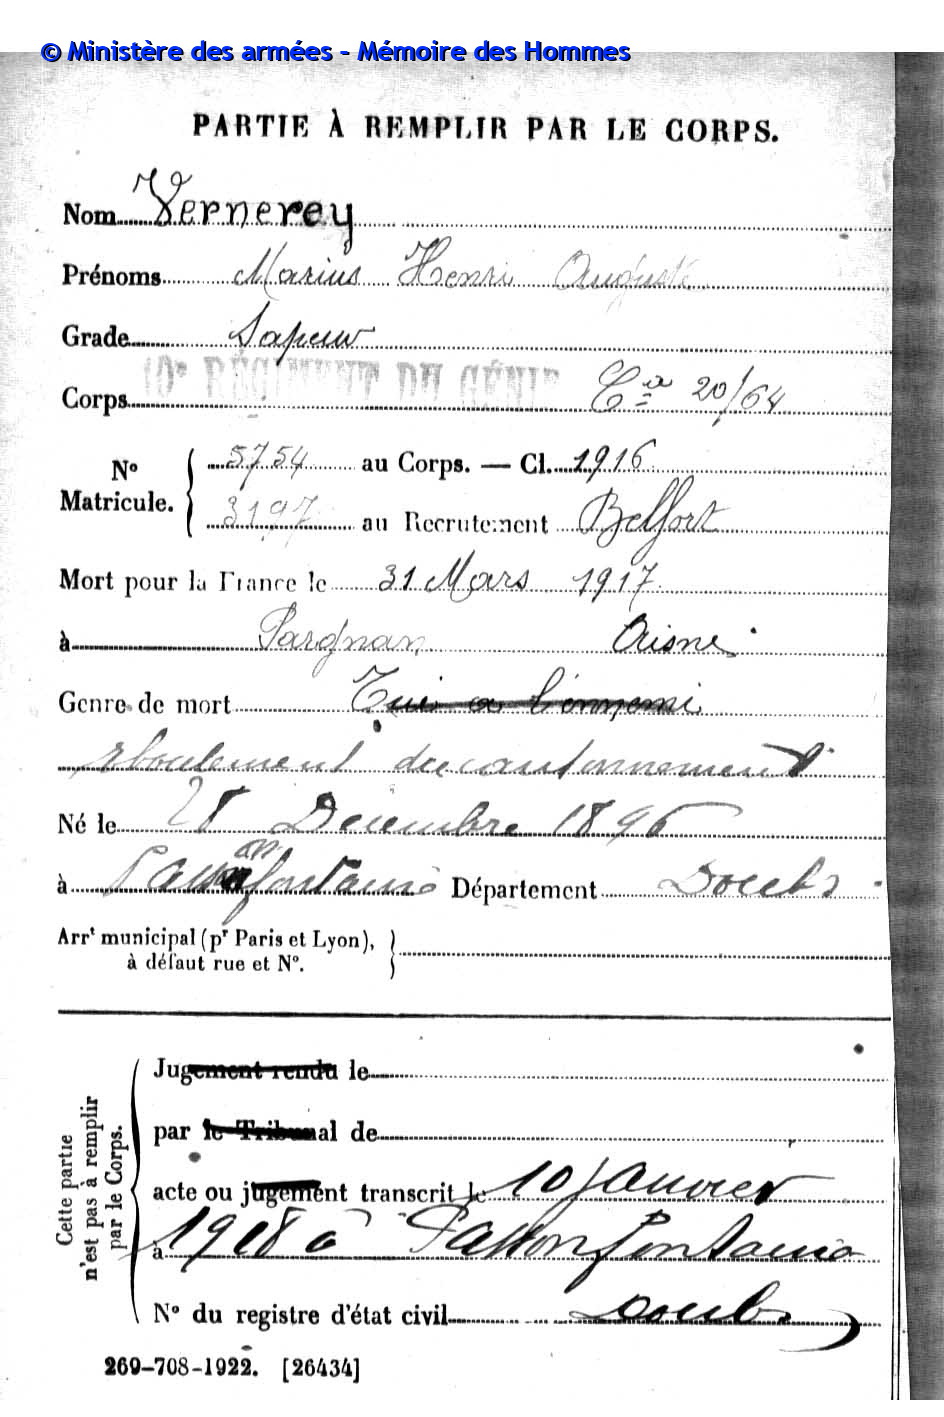 © Ministère des armées - Mémoire des Hommes
PARTIE À REMPLIR PAR LE CORPS.
Nom Vernerey
Prénoms Marius Henri Auguste
Grade Sapeur
10e RÉGIMENT DU GÉNIE
Corps Cie 20/64
No Matricule. 5754 au Corps. — Cl. 1916
3197 au Recrutement Belfort
Mort pour la France le 31 Mars 1917
à Pargnan Aisne
Genre de mort Tué à l'ennemi
éboulement du cantonnement
Né le 28 Décembre 1896
à Passonfontaine Département Doubs
Arrt municipal (pr Paris et Lyon),
à défaut rue et No.
Cette partie
n'est pas à remplir
par le Corps.
Jugement rendu le
par le Tribunal de
acte ou jugement transcrit le 10 Janvier
à 1918 à Passonfontaine
No du registre d'état civil Doubs
269-708-1922. [26434]